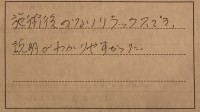 施術後かなりリラックスでき、
説明がわかりやすかった